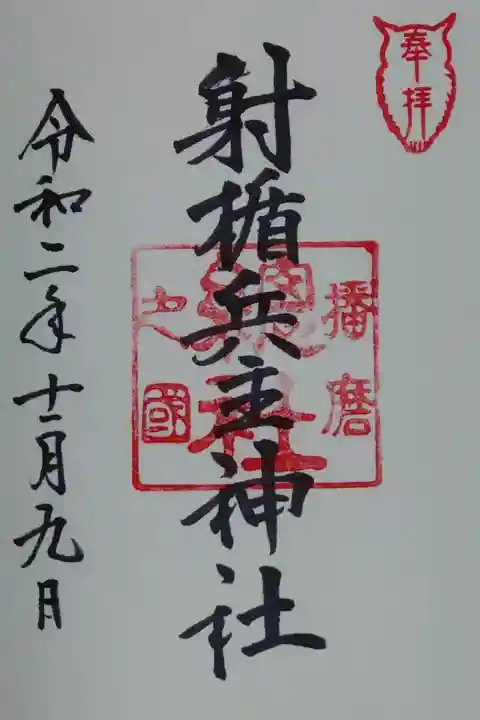 奉拝
射楯兵主神社
播磨
之國
總社
令和二年十一月九日